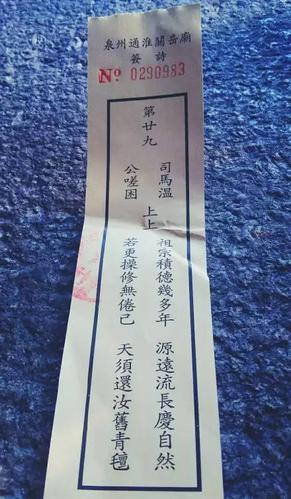 泉州通淮關岳廟
簽詩
Nº 0290983
第廿九
司馬溫
公嗟困
上上
祖宗積德幾多年 源遠流長慶自然
若更操修無倦己 天須還汝舊青氈